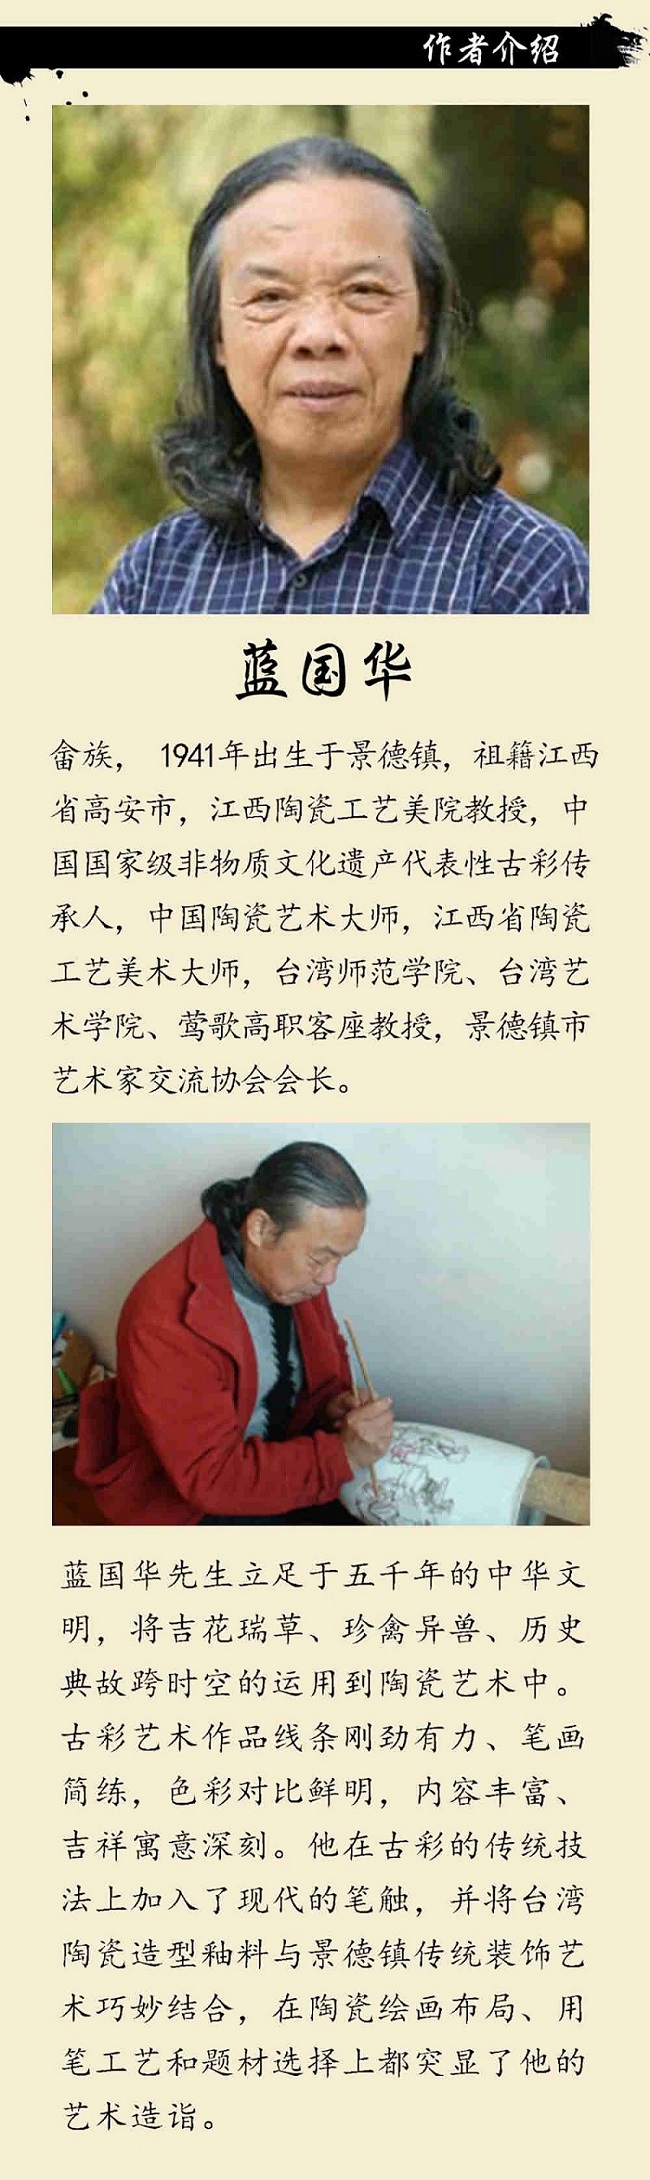 作者介绍
蓝国华
畲族， 1941年出生于景德镇，祖籍江西
省高安市，江西陶瓷工艺美院教授，中
国国家级非物质文化遗产代表性古彩传
承人，中国陶瓷艺术大师，江西省陶瓷
工艺美术大师，台湾师范学院、台湾艺
术学院、莺歌高职客座教授，景德镇市
艺术家交流协会会长。
蓝国华先生立足于五千年的中华文
明，将吉花瑞草、珍禽异兽、历史
典故跨时空的运用到陶瓷艺术中。
古彩艺术作品线条刚劲有力、笔画
简练，色彩对比鲜明，内容丰富、
吉祥寓意深刻。他在古彩的传统技
法上加入了现代的笔触，并将台湾
陶瓷造型釉料与景德镇传统装饰艺
术巧妙结合，在陶瓷绘画布局、用
笔工艺和题材选择上都突显了他的
艺术造诣。